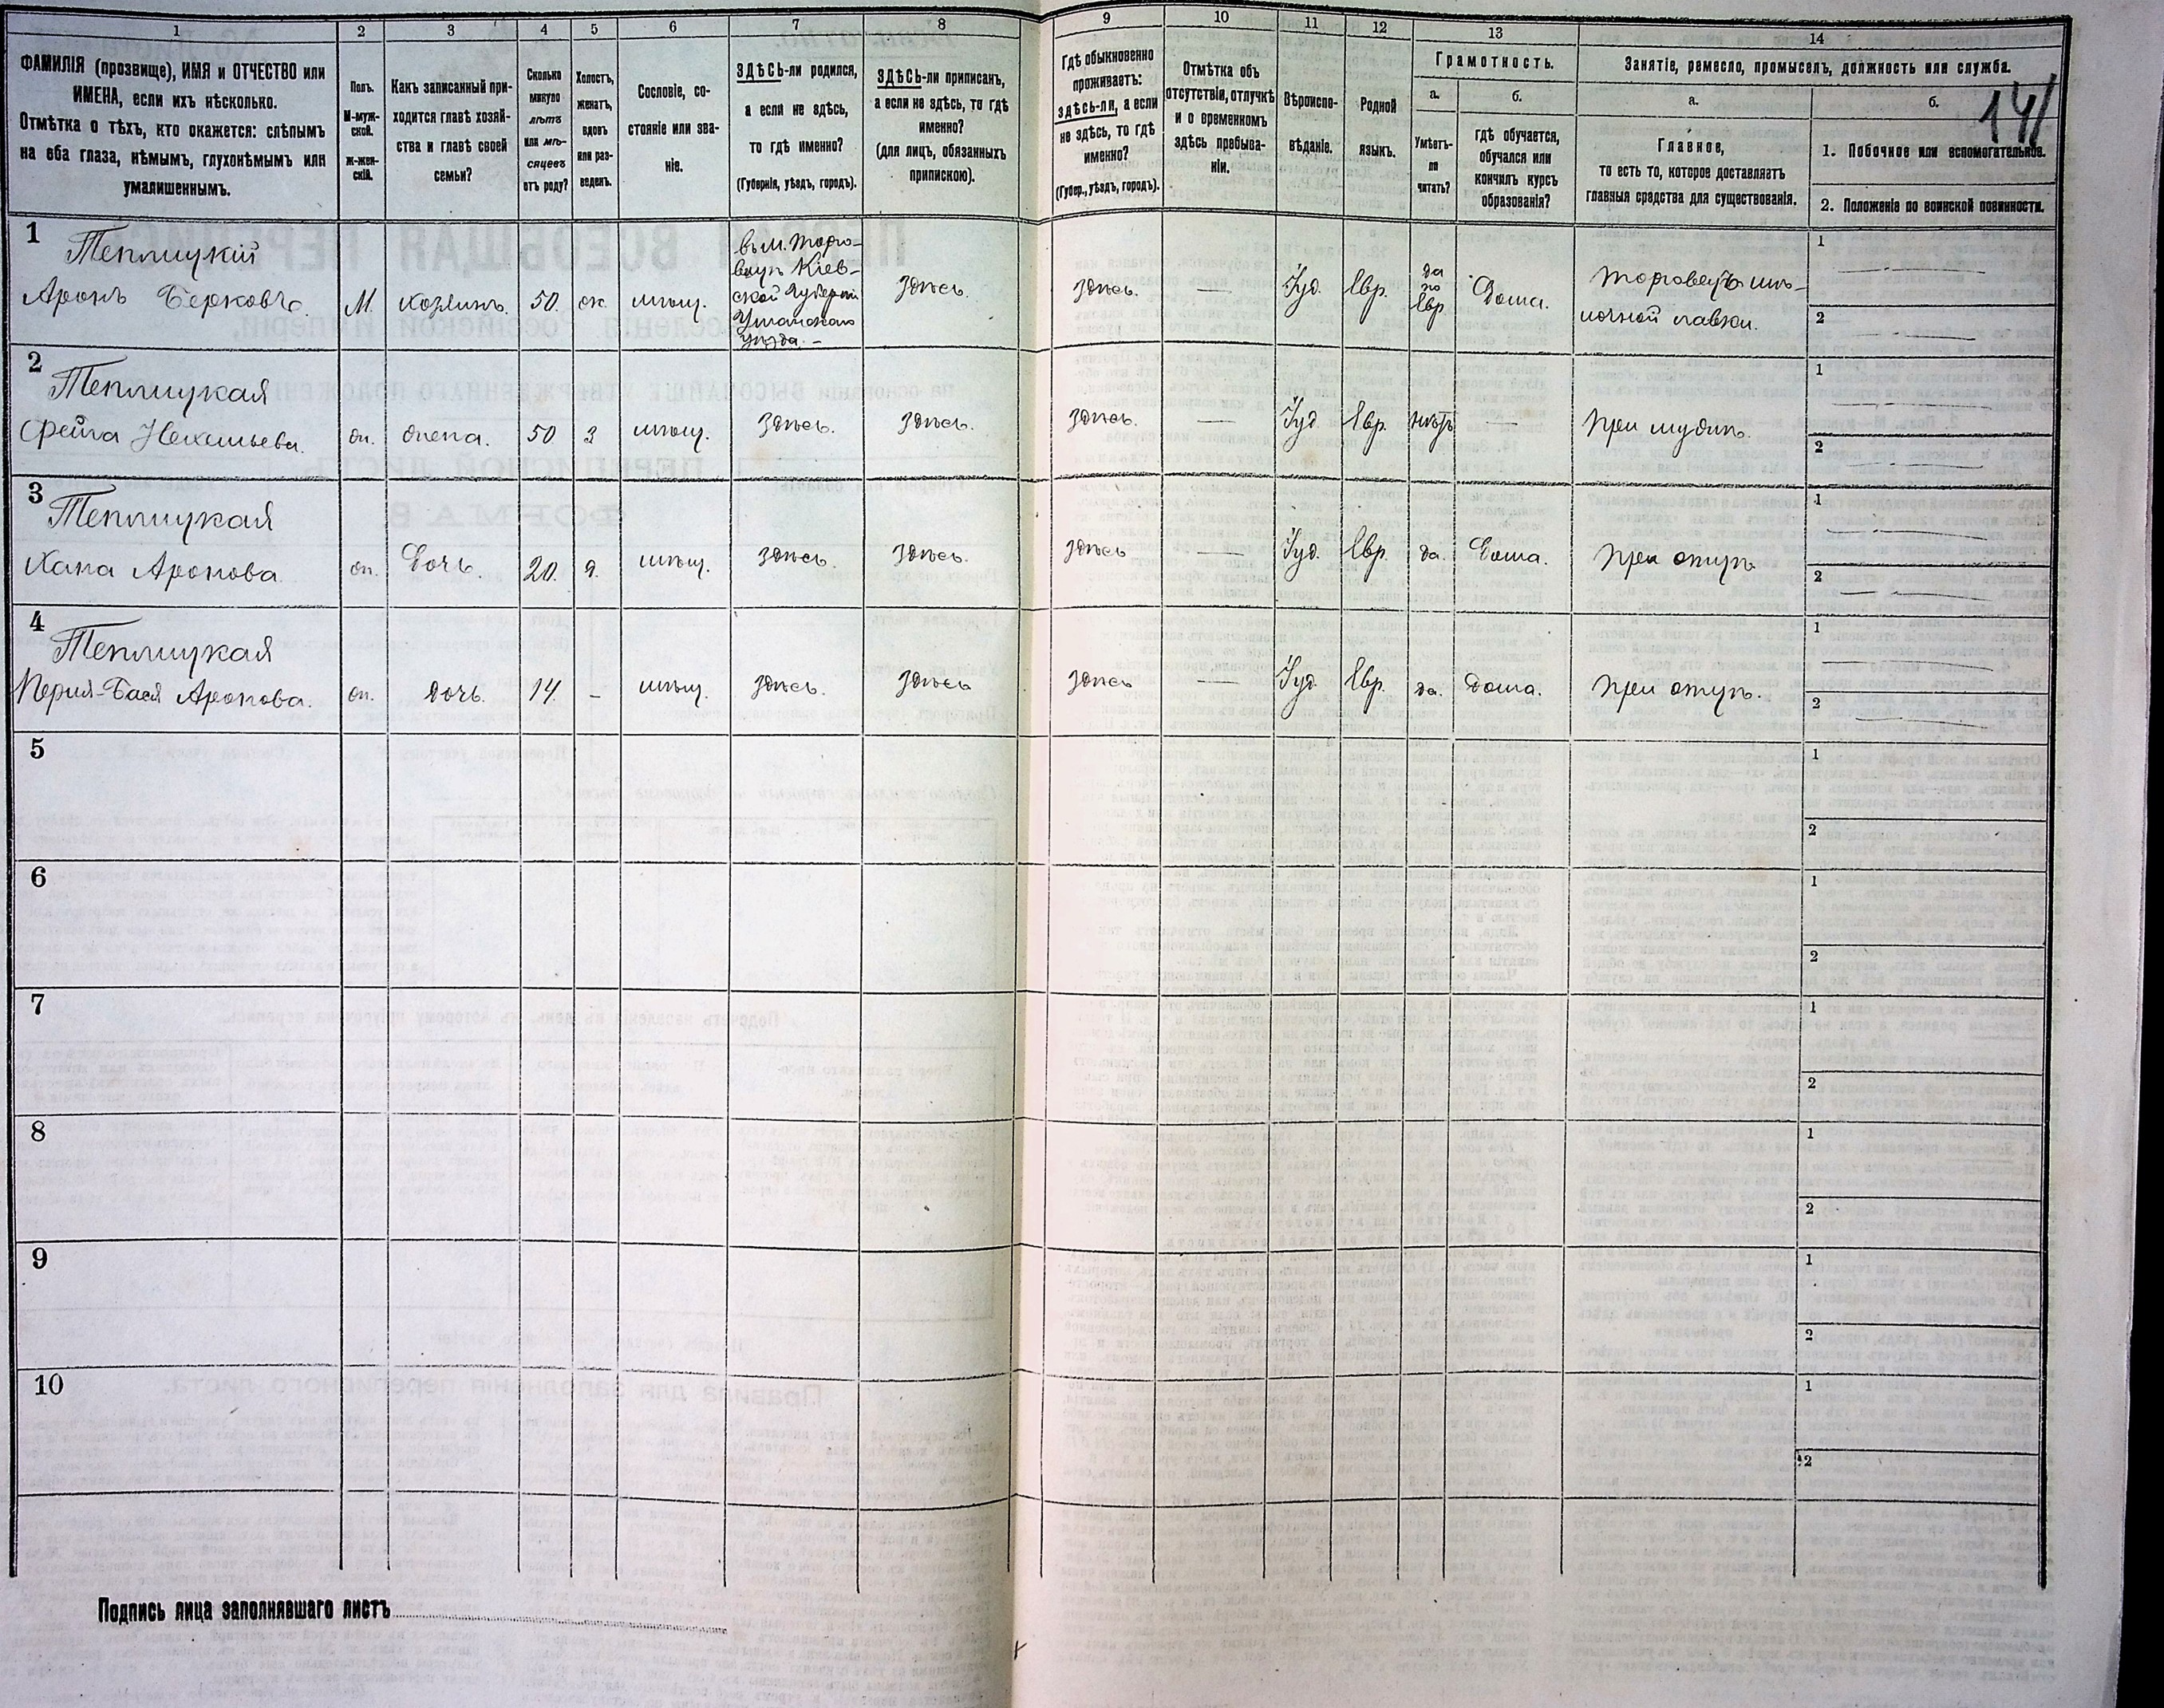 1 2 3 4 5 6 7 8 9 10 11 12 13 14
ФАМИЛІЯ (прозвище), ИМЯ и ОТЧЕСТВО или
ИМЕНА, если ихъ нѣсколько.
Отмѣтка о тѣхъ, кто окажется: слѣпымъ
на оба глаза, нѣмымъ, глухонѣмымъ или
умалишеннымъ.
Полъ.
М-муж-
ской.
Ж-жен-
скій.
Какъ записанный при-
ходится главѣ хозяй-
ства и главѣ своей
семьи?
Сколько
минуло
лѣтъ
или мѣ-
сяцевъ
отъ роду?
Холостъ,
женатъ,
вдовъ
или раз-
веденъ.
Сословіе, со-
стояніе или зва-
ніе.
ЗДѢСЬ-ли родился,
а если не здѣсь,
то гдѣ именно?
(Губернія, уѣздъ, городъ).
ЗДѢСЬ-ли приписанъ,
а если не здѣсь, то гдѣ
именно?
(для лицъ, обязанныхъ
припискою).
Гдѣ обыкновенно
проживаетъ:
здѣсь-ли, а если
не здѣсь, то гдѣ
именно?
(Губер., уѣздъ, городъ).
Отмѣтка объ
отсутствіи, отлучкѣ
и о временномъ
здѣсь пребыва-
ніи.
Вѣроиспо-
вѣданіе.
Родной
языкъ.
Грамотность.
а.
Умѣетъ-
ли
читать?
б.
гдѣ обучается,
обучался или
кончилъ курсъ
образованія?
Занятіе, ремесло, промыселъ, должность или служба.
а.
Главное,
то есть то, которое доставляетъ
главныя средства для существованія.
б.
141
1. Побочное или вспомогательное.
2. Положеніе по воинской повинности.
1
Теплицкій
Аронъ Берковъ.
М.
хозяинъ.
50.
мѣщ.
въ м. Торго-
вицѣ Кіев-
ской Губерніи
Уманскаго
уѣзда. -
здѣсь.
здѣсь.
—
Іуд.
Евр.
да
по
Евр
Дома.
1
2
2
Теплицкая
Фейга
50
з
мѣщ.
здѣсь.
здѣсь.
здѣсь.
—
Іуд.
Евр.
нѣтъ
—
при мужѣ.
1
2
3
Теплицкая
Хана Аронова.
Дочь.
20.
д.
мѣщ.
здѣсь.
здѣсь.
здѣсь
—
Іуд.
Евр.
да.
Дома.
при отцѣ
1
2
4
Теплицкая
Аронова.
дочь.
14.
-
мѣщ.
здѣсь.
здѣсь
здѣсь
—
Іуд.
Евр.
да.
дома.
при отцѣ.
1
2
5
1
2
6
1
2
7
1
2
8
1
2
9
1
2
10
1
2
Подпись лица заполнявшаго листъ